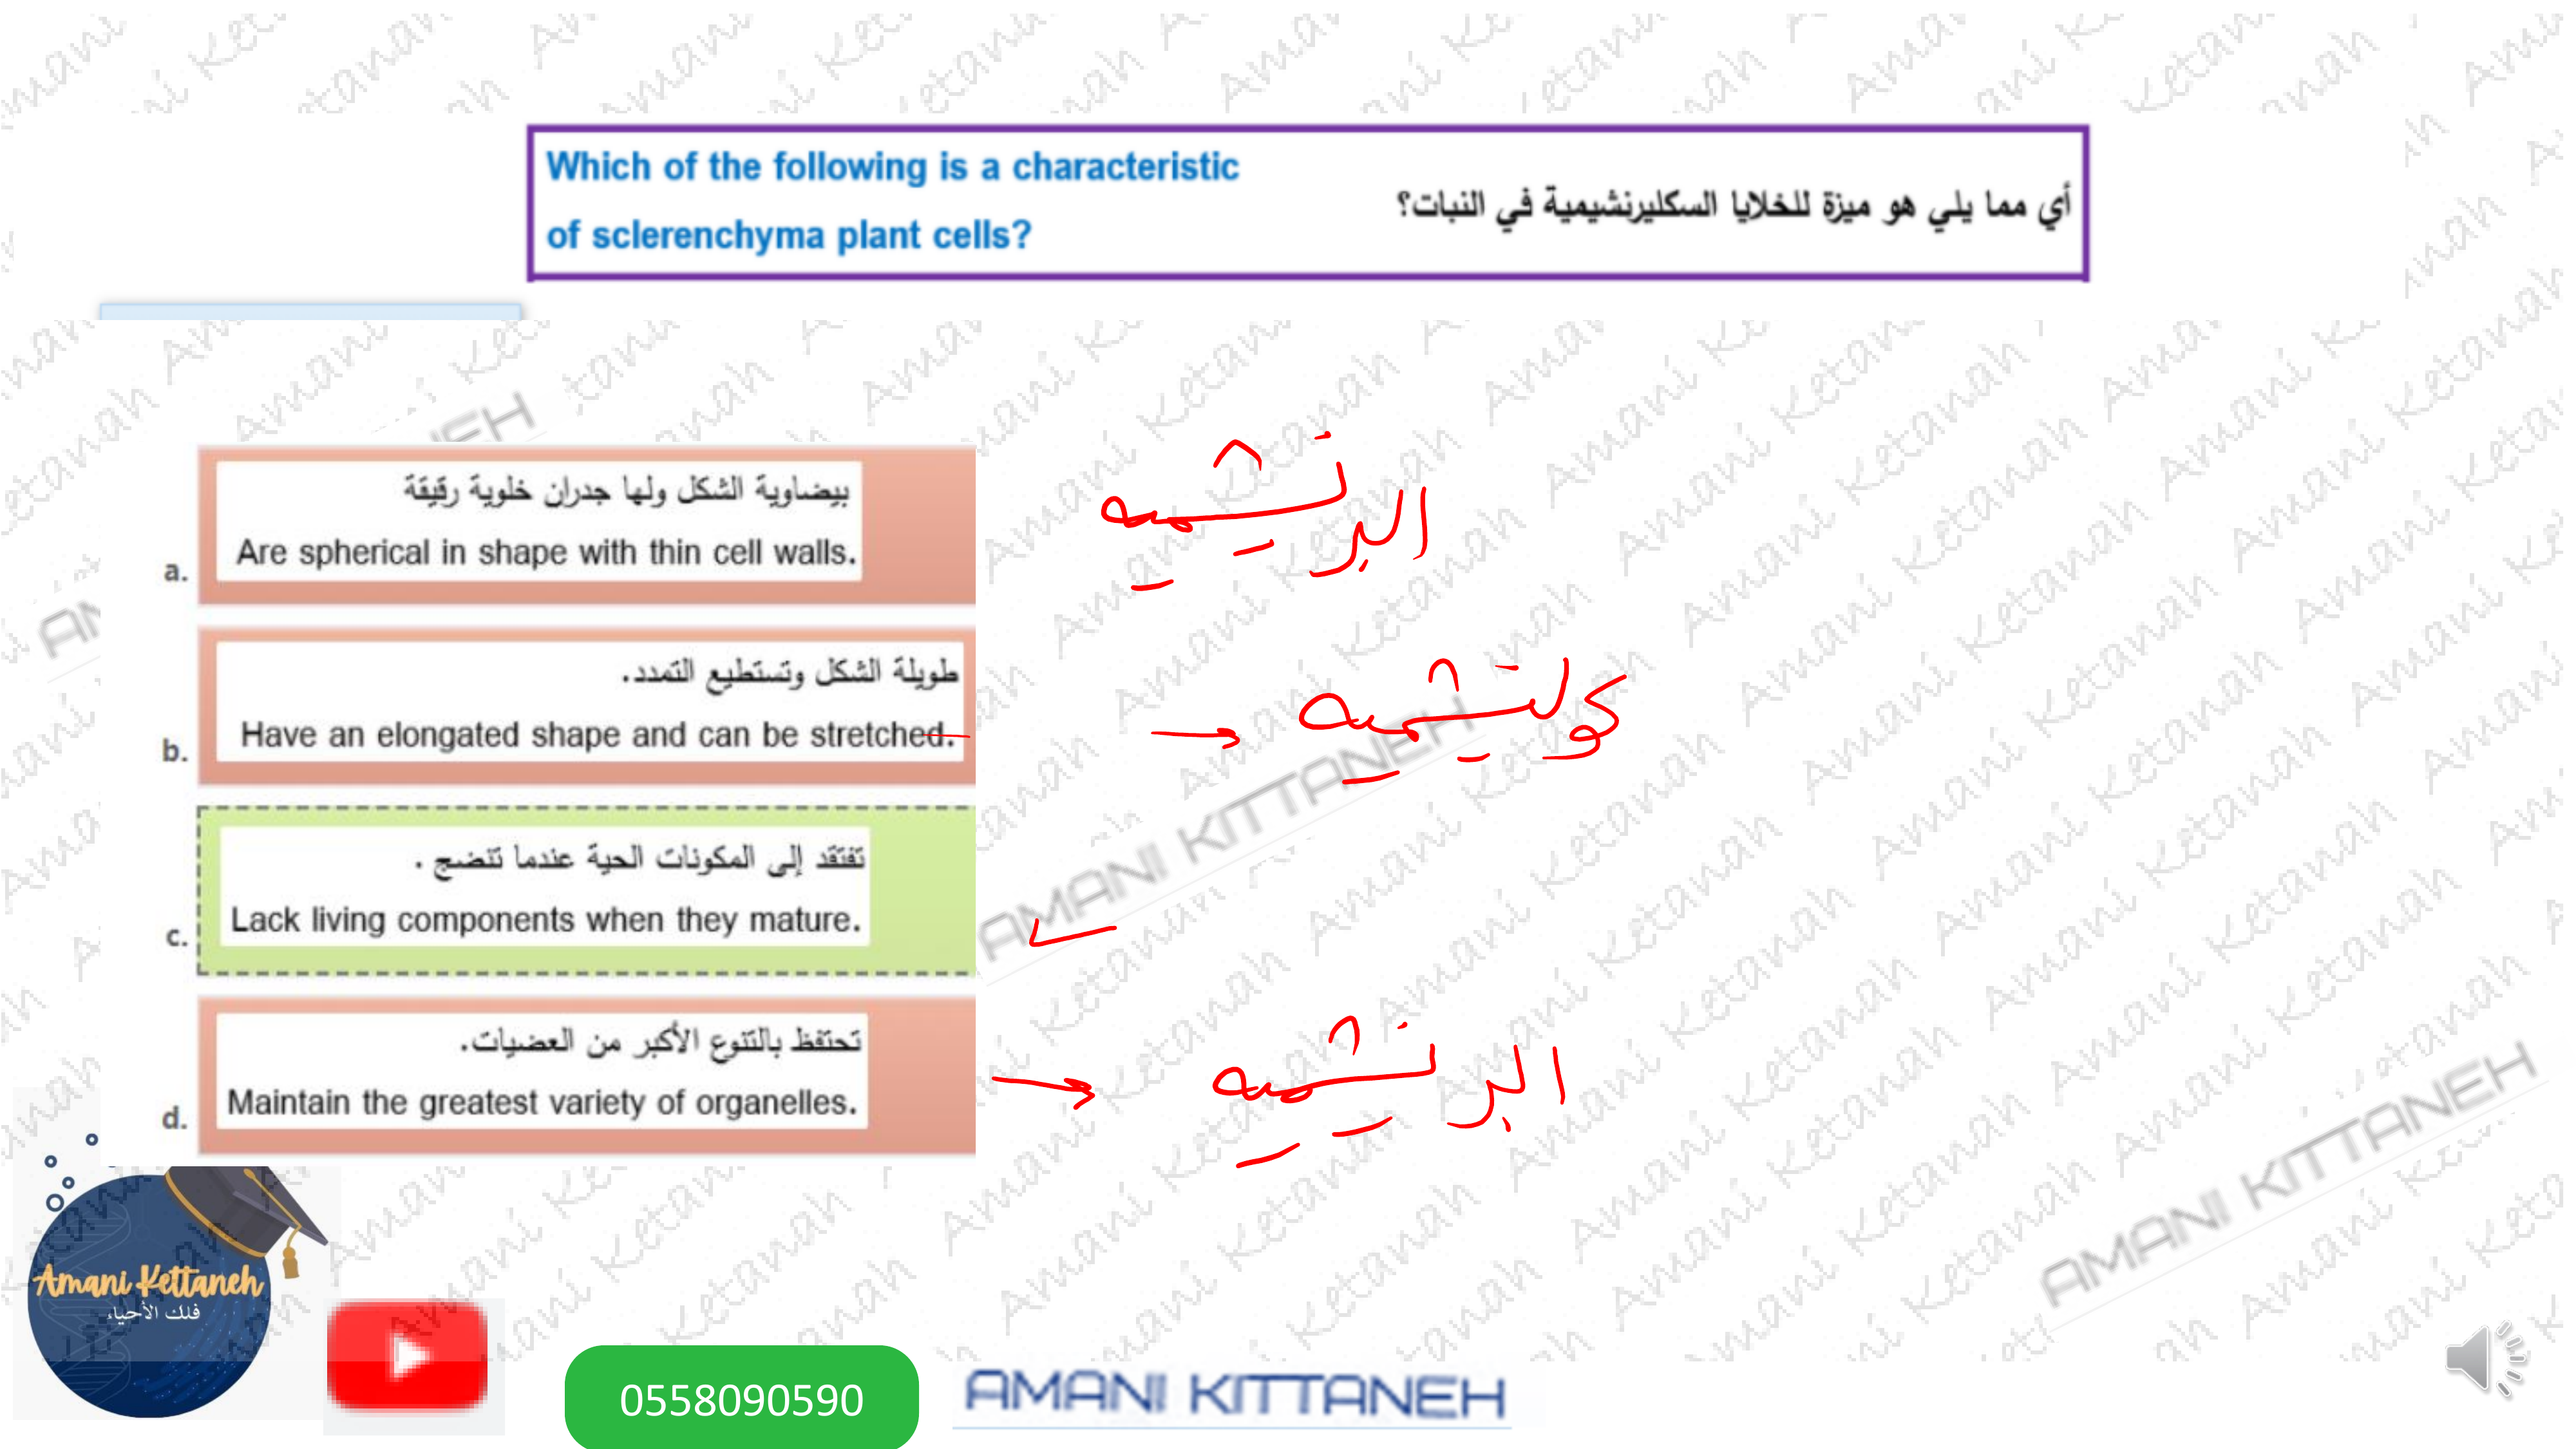 Which of the following is a characteristic
of sclerenchyma plant cells?
أي مما يلي هو ميزة للخلايا السكليرنشيمية في النبات؟
a.
بيضاوية الشكل ولها جدران خلوية رقيقة
Are spherical in shape with thin cell walls.
البرنشيميه
b.
طويلة الشكل وتستطيع التمدد.
Have an elongated shape and can be stretched.
كولنشيميه
c.
تفتقد إلى المكونات الحية عندما تنضج .
Lack living components when they mature.
d.
تحتفظ بالتنوع الأكبر من العضيات.
Maintain the greatest variety of organelles.
البرنشيميه
Amani Kettaneh
فلك الأحياء
0558090590
AMANI KITTANEH
AMANI KITTANEH
AMANI KITTANEH